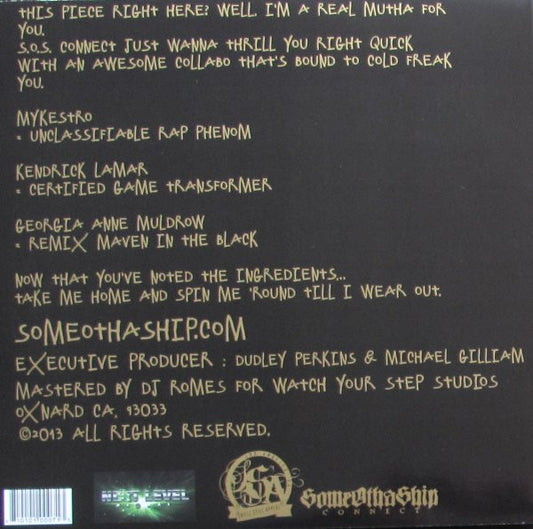 THIS PIECE RIGHT HERE? WELL I'M A REAL MUTHA FOR
YOU.
S.O.S. CONNECT JUST WANNA THRILL YOU RIGHT QUICK
WITH AN AWESOME COLLABO THAT'S BOUND TO COLD FREAK
YOU.
MYKESTRO
= UNCLASSIFIABLE RAP PHENOM
KENDRICK LAMAR
= CERTIFIED GAME TRANSFORMER
GEORGIA ANNE MULDROW
= REMIX MAVEN IN THE BLACK
NOW THAT YOU'VE NOTED THE INGREDIENTS...
TAKE ME HOME AND SPIN ME 'ROUND TILL I WEAR OUT.
SOMEOTHASHIP.COM
EXECUTIVE PRODUCER : DUDLEY PERKINS & MICHAEL GILLIAM
MASTERED BY DJ ROMES FOR WATCH YOUR STEP STUDIOS
OXNARD CA, 93033
©2013 ALL RIGHTS RESERVED.
NEXT LEVEL
SomeOthaShip
CONNECT